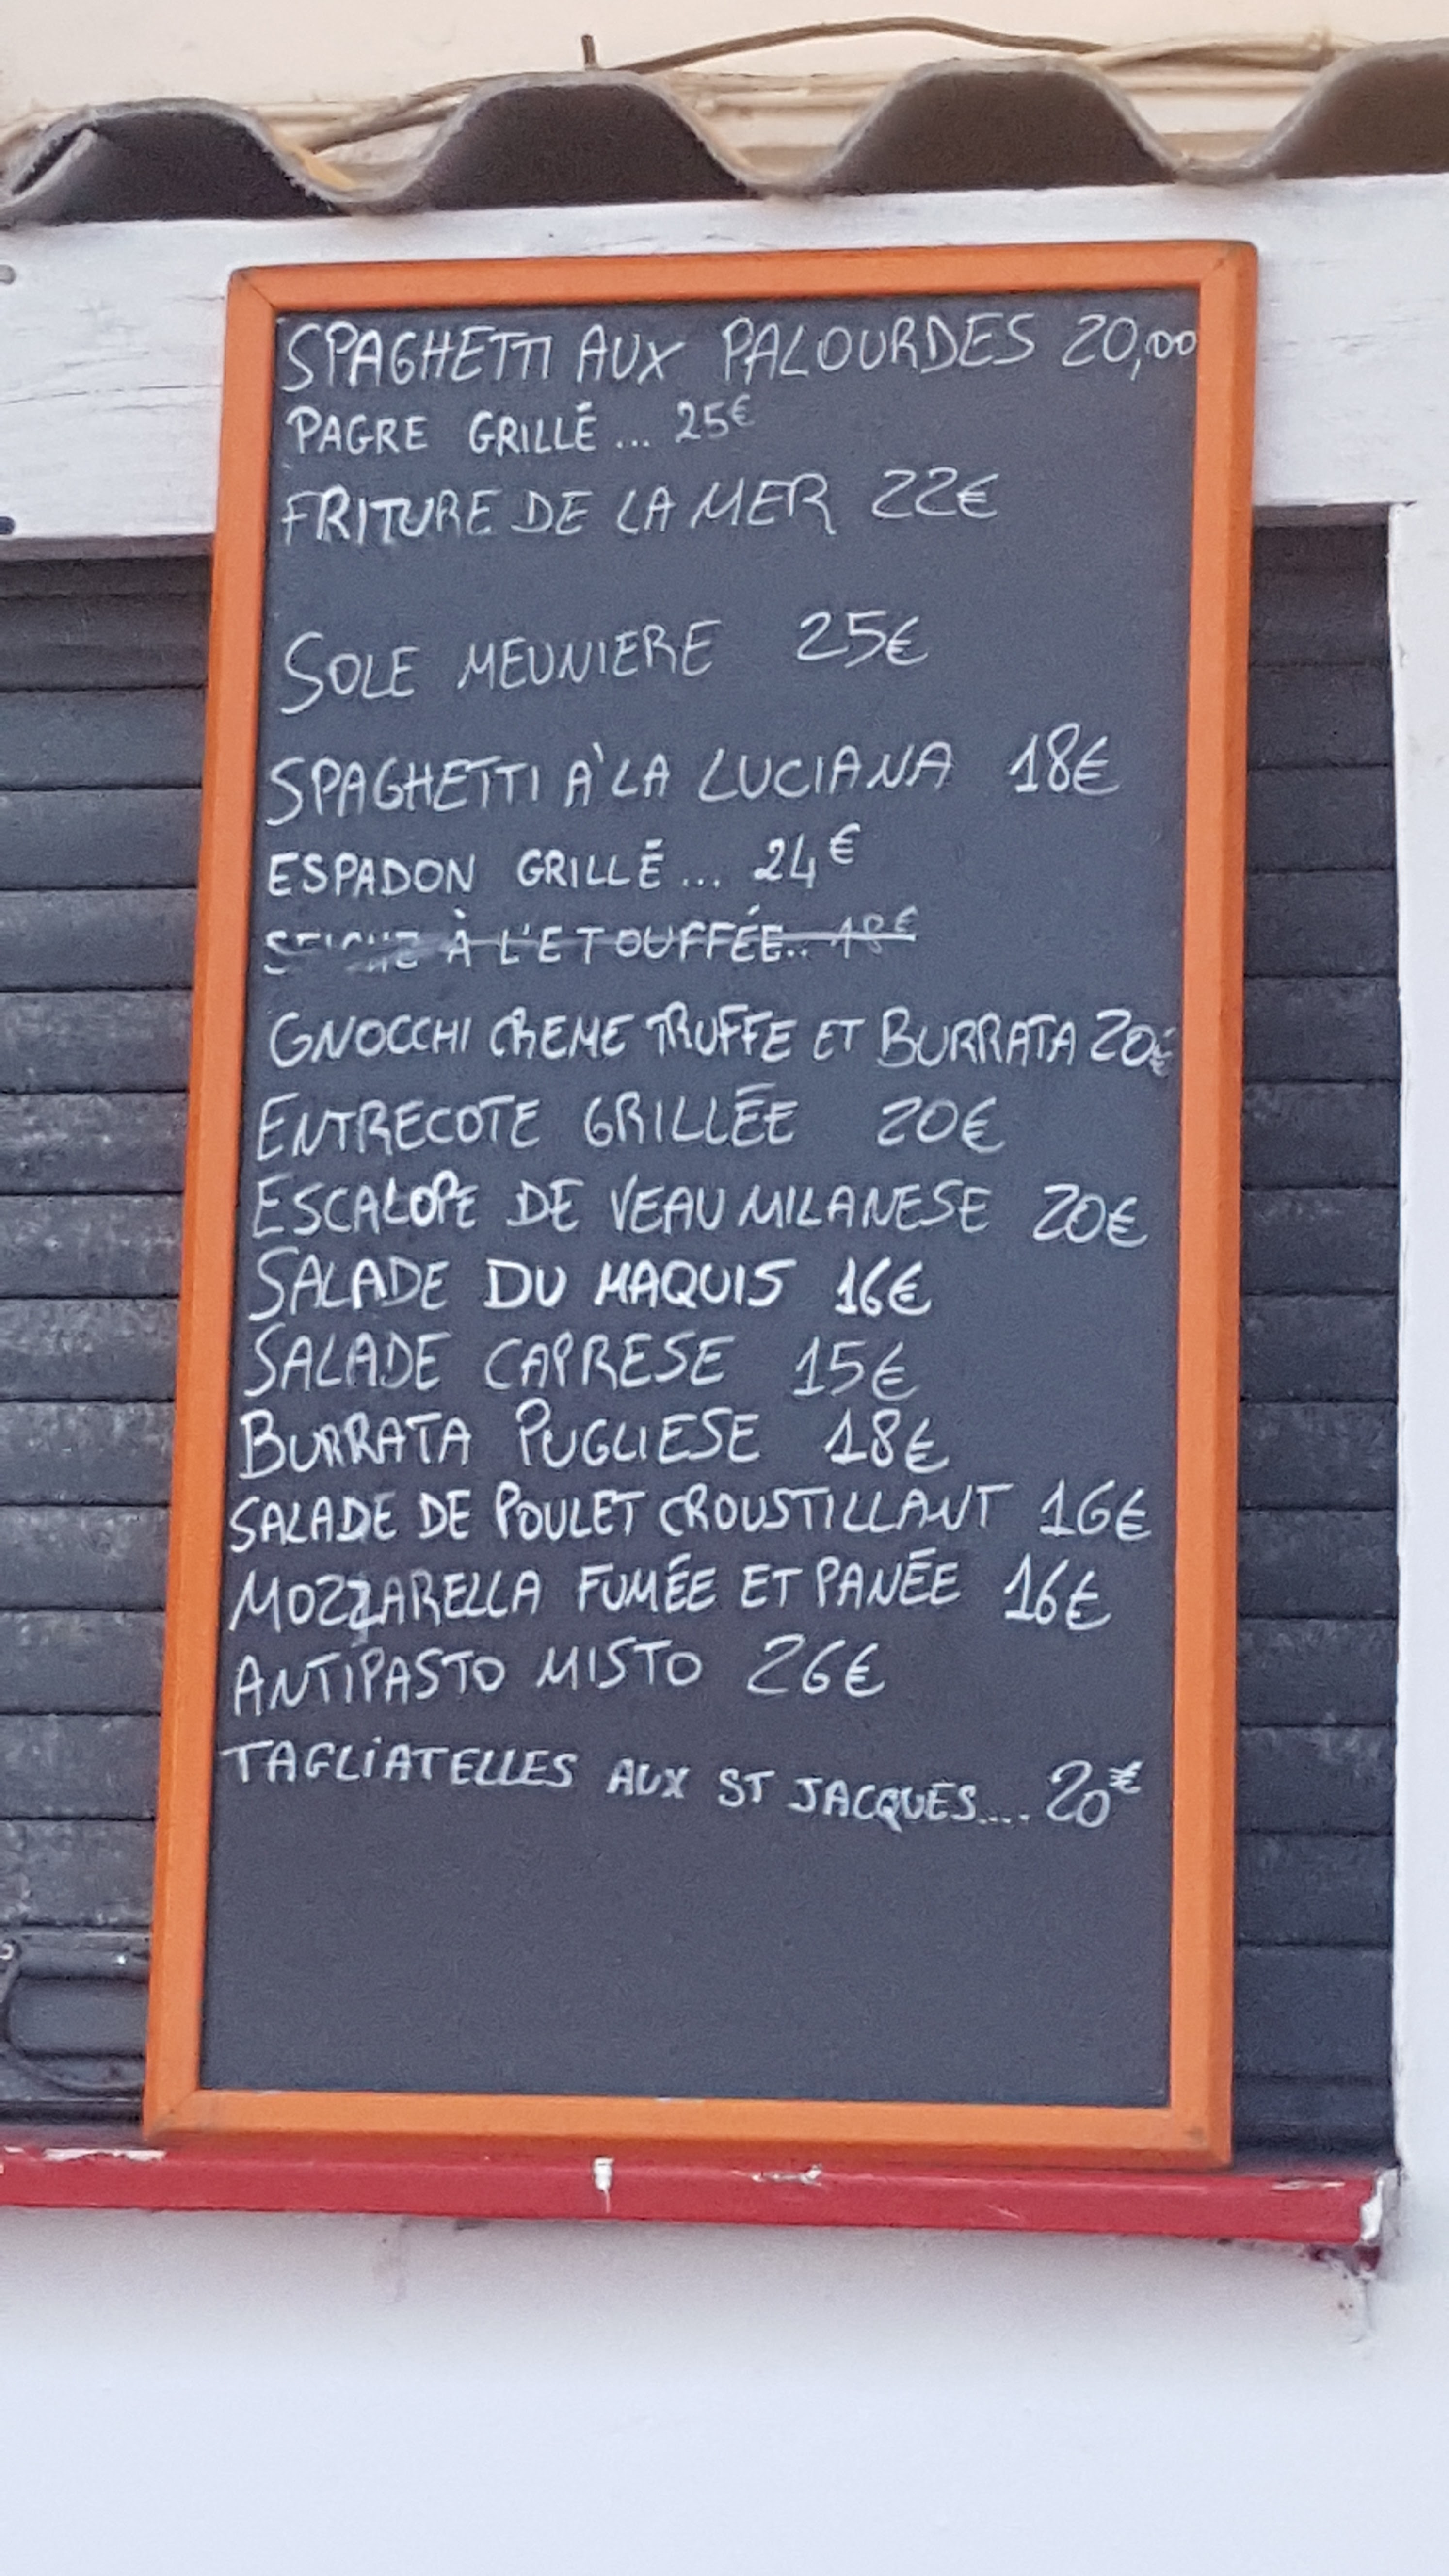 SPAGHETTI AUX PALOURDES 20,00
PAGRE GRILLÉ... 25€
FRITURE DE LA MER 22€
SOLE MEUNIERE 25€
SPAGHETTI À LA LUCIANA 18€
ESPADON GRILLÉ... 24€
À L'ETOUFFÉE.. 18€
GNOCCHI CREME TRUFFE ET BURRATA 20€
ENTRECOTE GRILLÉE 20€
ESCALOPE DE VEAU MILANESE 20€
SALADE DU MAQUIS 16€
SALADE CAPRESE 15€
BURRATA PUGLIESE 18€
SALADE DE POULET CROUSTILLANT 16€
MOZZARELLA FUMÉE ET PANÉE 16€
ANTIPASTO MISTO 26€
TAGLIATELLES AUX ST JACQUES.... 20€